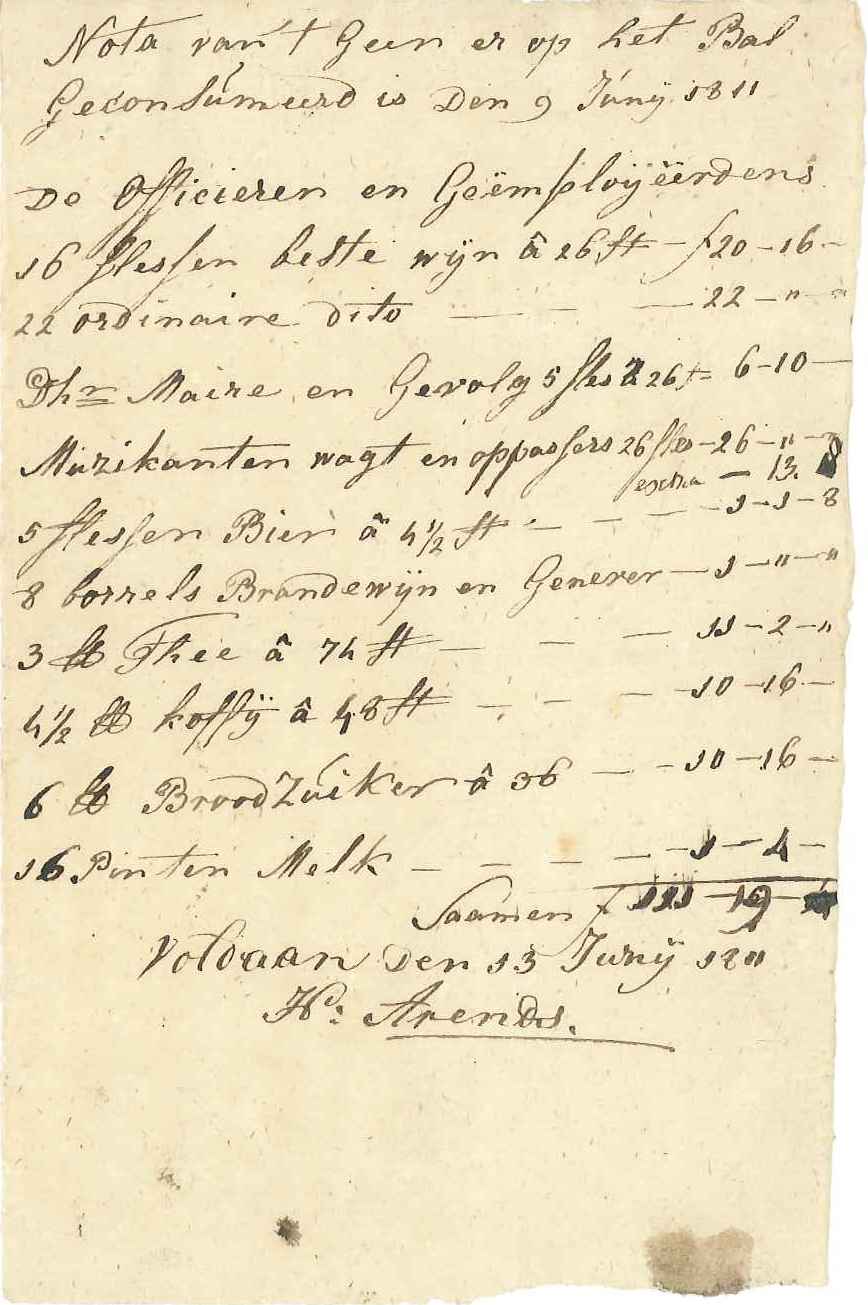 Nota van 't Geen er op het Bal
Geconsúmeerd is Den 9 Júnÿ 1811
De Officieren en Geëmploÿëërdens
16 flessen beste wÿn â 26 st - f 20 - 16 -
22 ordinaire dito — — — 22 - " - "
Dhr Maire en Gevolg 5 fles â 26 st 6 - 10 —
Muzikanten wagt en oppassers 26 fles - 26 - " - "
extra — 13.
5 flessen Bier â 4 1/2 st - — — - 1 - 1 - 8
8 borrels Brandewÿn en Genever - 1 - " - "
3 ℔ Thee â 74 st — — — 11 - 2 - "
4 1/2 ℔ koffÿ â 48 st - - — - 10 - 16 -
6 ℔ Brood Zúiker â 36 — - 10 - 16 -
16 Pinten Melk — - — — - 1 - 4 -
Saamen f 111 - 19
Voldaan Den 13 Junÿ 1811
Hs: Arends.